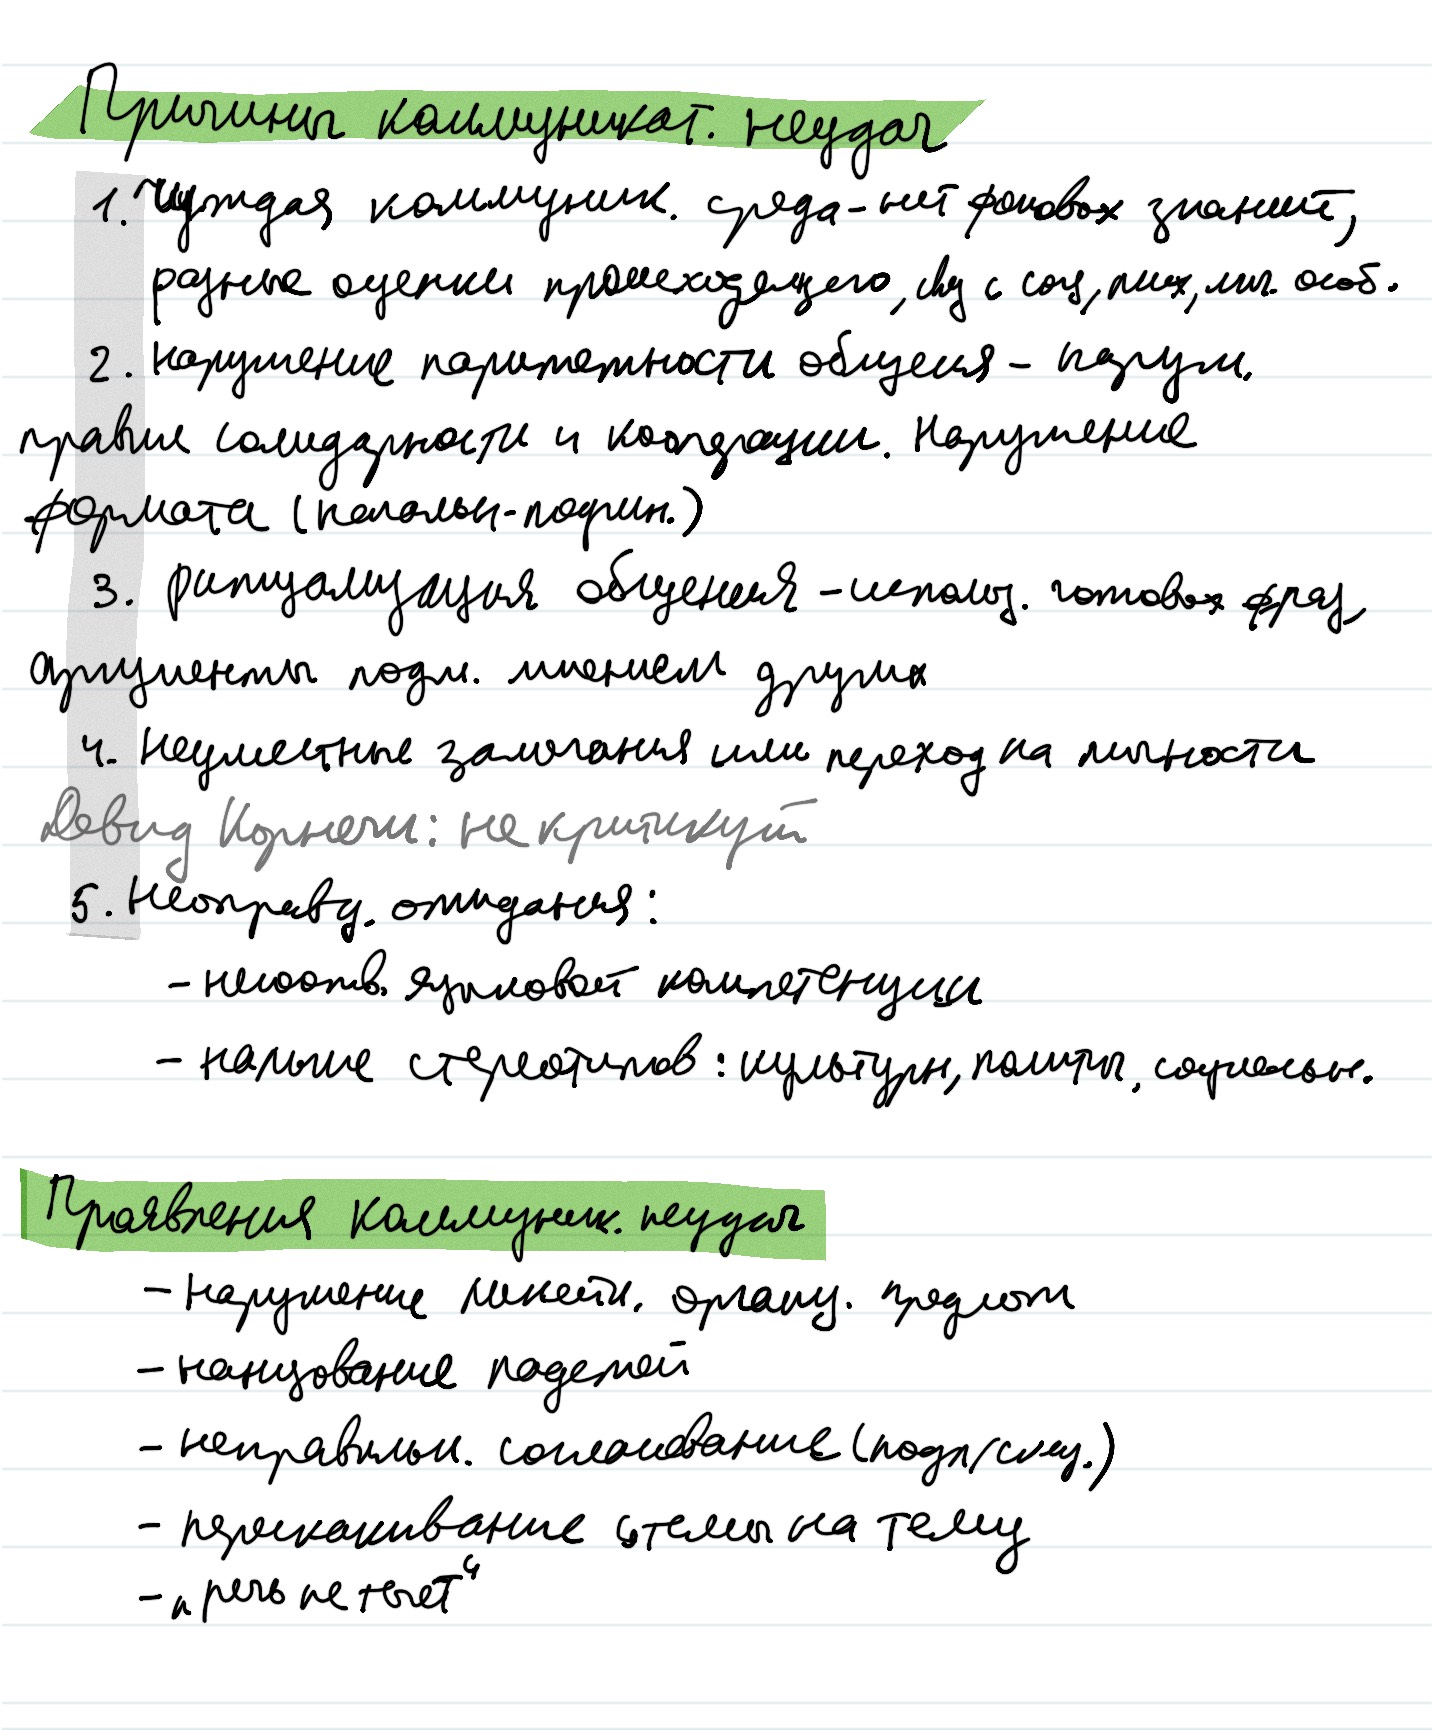 Причины коммуникат. неудач
1. Чуждая коммуник. среда - нет фоновых знаний,
разные оценки происходящего, с соц, псих, лич. особ.
2. нарушение паритетности общения - наруш.
правил солидарности и кооперации. Нарушение
формата (начальн-подчин.)
3. ритуализация общения - использ. готовых фраз,
аргументы подм. мнением других
4. Неуместные замечания или переход на личности
Девид Корнеги: не критикуй
5. Неоправд. ожидания:
- несоотв. языковой компетенции
- налич­ие стереотипов: культурн, политич, социальн.
Проявления коммуник. неудач
- нарушение линейн. организ. предлож
- нанизование падежей
- неправильн. согласование (подл/сказ.)
- перескакивание с темы на тему
- „речь не течет“